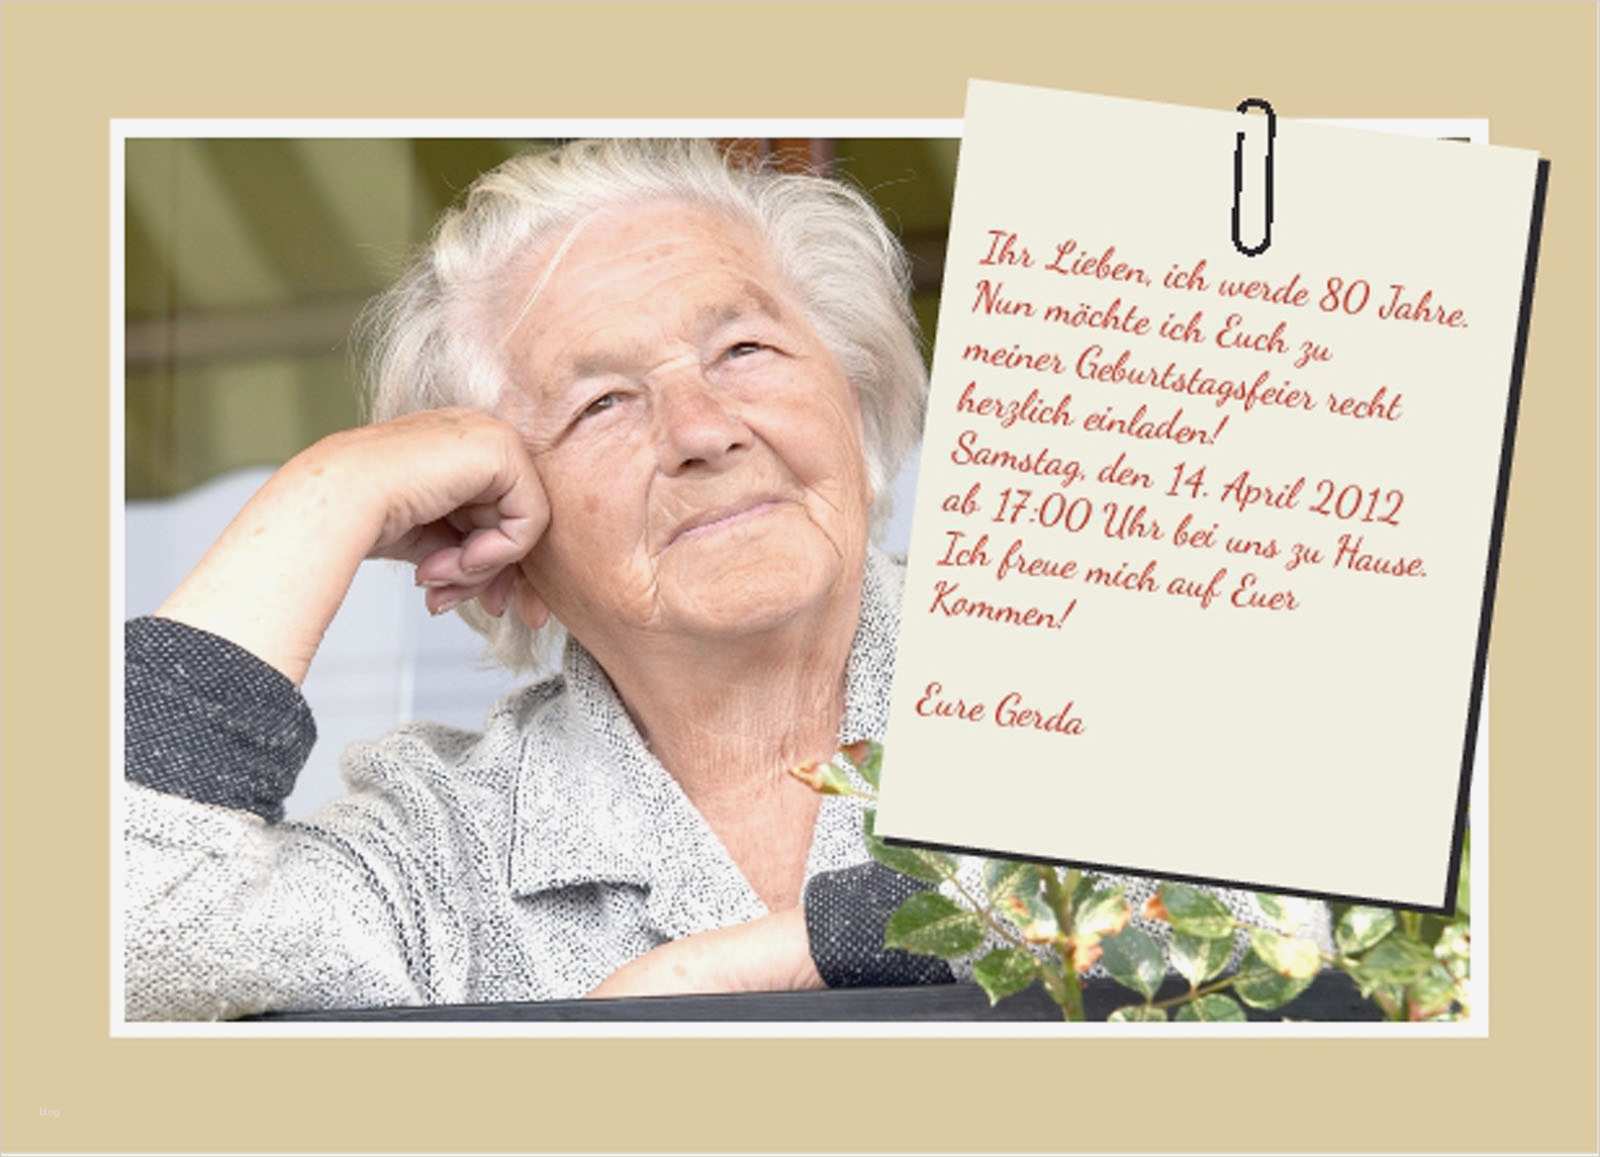 Ihr Lieben, ich werde 80 Jahre.
Nun möchte ich Euch zu
meiner Geburtstagsfeier recht
herzlich einladen!
Samstag, den 14. April 2012
ab 17:00 Uhr bei uns zu Hause.
Ich freue mich auf Euer
Kommen!
Eure Gerda
blog